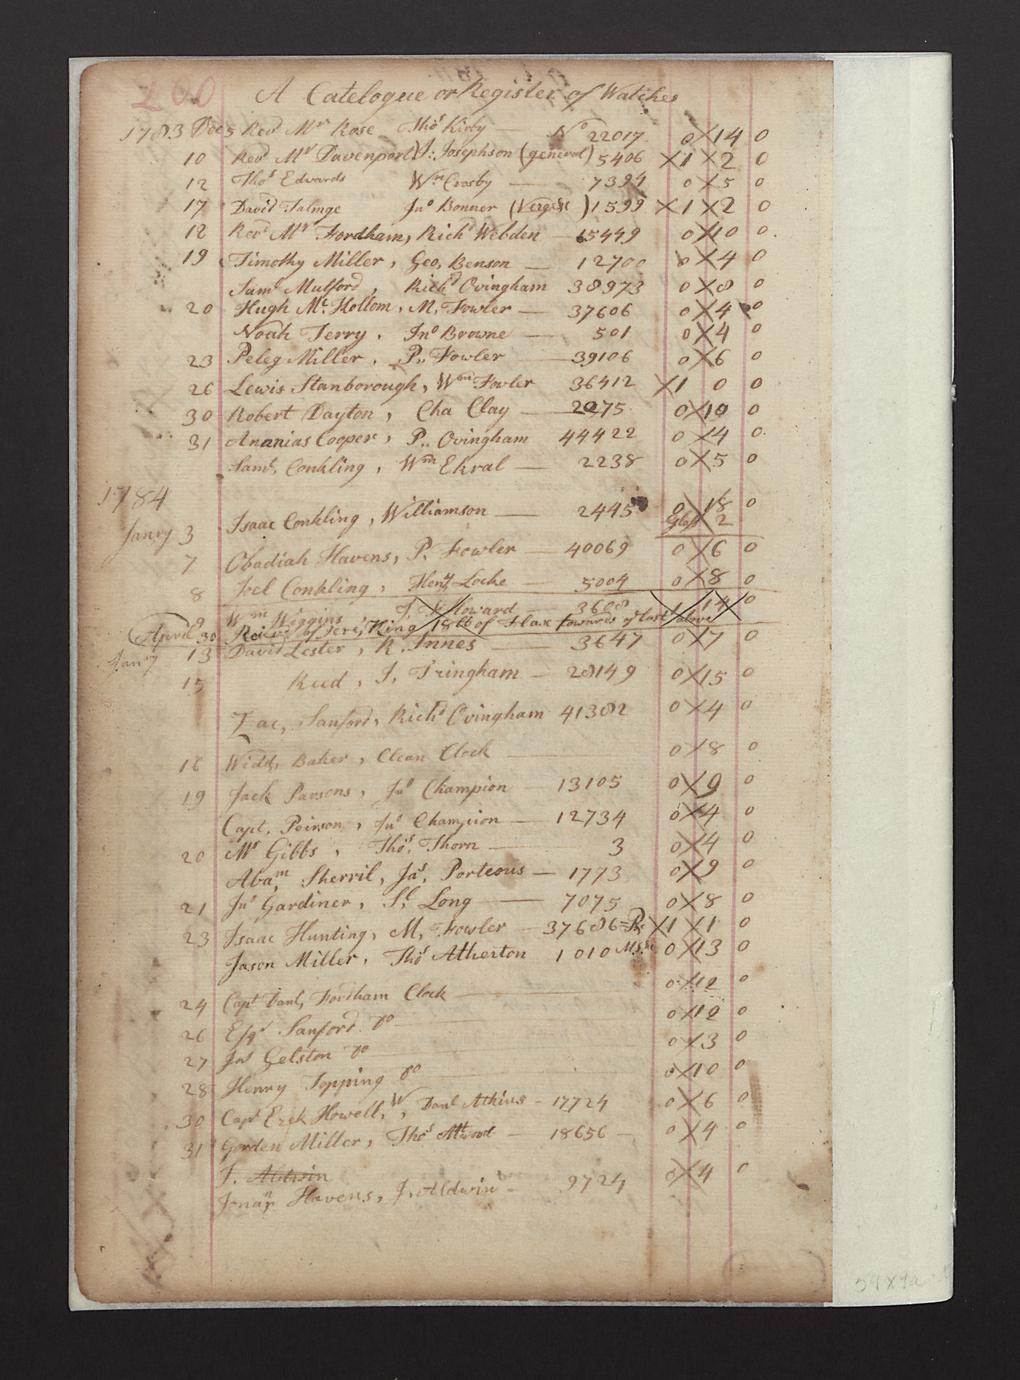 200
A Catelogue or Register of Watches
1783 Decr 5 Revd Mr Rose Thos Kirby — No 22017 0 14 0
10 Revd Mr Davenport J: Josephson (general) 5406 1 2 0
12 Thos Edwards Wm Crosby — 7394 0 5 0
17 David Talmge Jno Bonner (Verge) 1599 1 2 0
18 Revd Mr Fordham, Richd Webden — 15449 0 10 0
19 Timothy Miller, Geo, Benson — 12700 0 4 0
Saml Mulford, Richd Ovingham 38973 0 8 0
20 Hugh Mc Hollom, M, Fowler — 37606 0 4 0
Noah Terry, Jno Browne — 501 0 4 0
23 Peleg Miller, P,, Fowler — 39106 0 6 0
26 Lewis Stanborough, Wm Fowler 36412 1 0 0
30 Robert Dayton, Cha Clay — 2275 0 10 0
31 Ananias Cooper, P,, Ovingham 44422 0 4 0
Saml, Conkling, Wm Ekral — 2238 0 5 0
1784
Janry 3 Isaac Conkling, Williamson — 2445 0 18 0
Glass 2
7 Obadiah Havens, P, Fowler — 40069 0 6 0
8 Joel Conkling, Heny Locke — 5004 0 8 0
9 Wm Wiggins J, Howard — 3668 1 14 0
April 30 King 18 lb of Flax towards ye Cost above
Janry 13 David Lester, R, Innes — 3647 0 7 0
15 Reed, J, Tringham — 28149 0 15 0
Zac, Sanford, Richd Ovingham 41382 0 4 0
16 Widdw Baker, Clean Clock 0 8 0
19 Jack Parsons, Jno Champion — 13105 0 9 0
Capt, Peirson, Jno Champion — 12734 0 4 0
20 Mr Gibbs, Thos, Thorn — 3 0 4 0
Abam, Sherril, Jas, Porteous — 1773 0 9 0
21 Jno Gardiner, Sl Long — 7075 0 8 0
23 Isaac Hunting, M, Fowler — 37686 1 1 0
Jason Miller, Thos Atherton 1010 0 13 0
24 Capt Danl, Fordham Clock — 0 12 0
26 Esqr Sanford Do 0 12 0
27 Jno Gelston Do 0 3 0
28 Henry Topping Do 0 10 0
30 Capt Ezek Howell, W, Danl Atkins - 17724 0 6 0
31 Gorden Miller, Thos Attwood — 18656 0 4 0
J. Aldwin
Jonan Havens, J. Aldwin - 9724 0 4 0